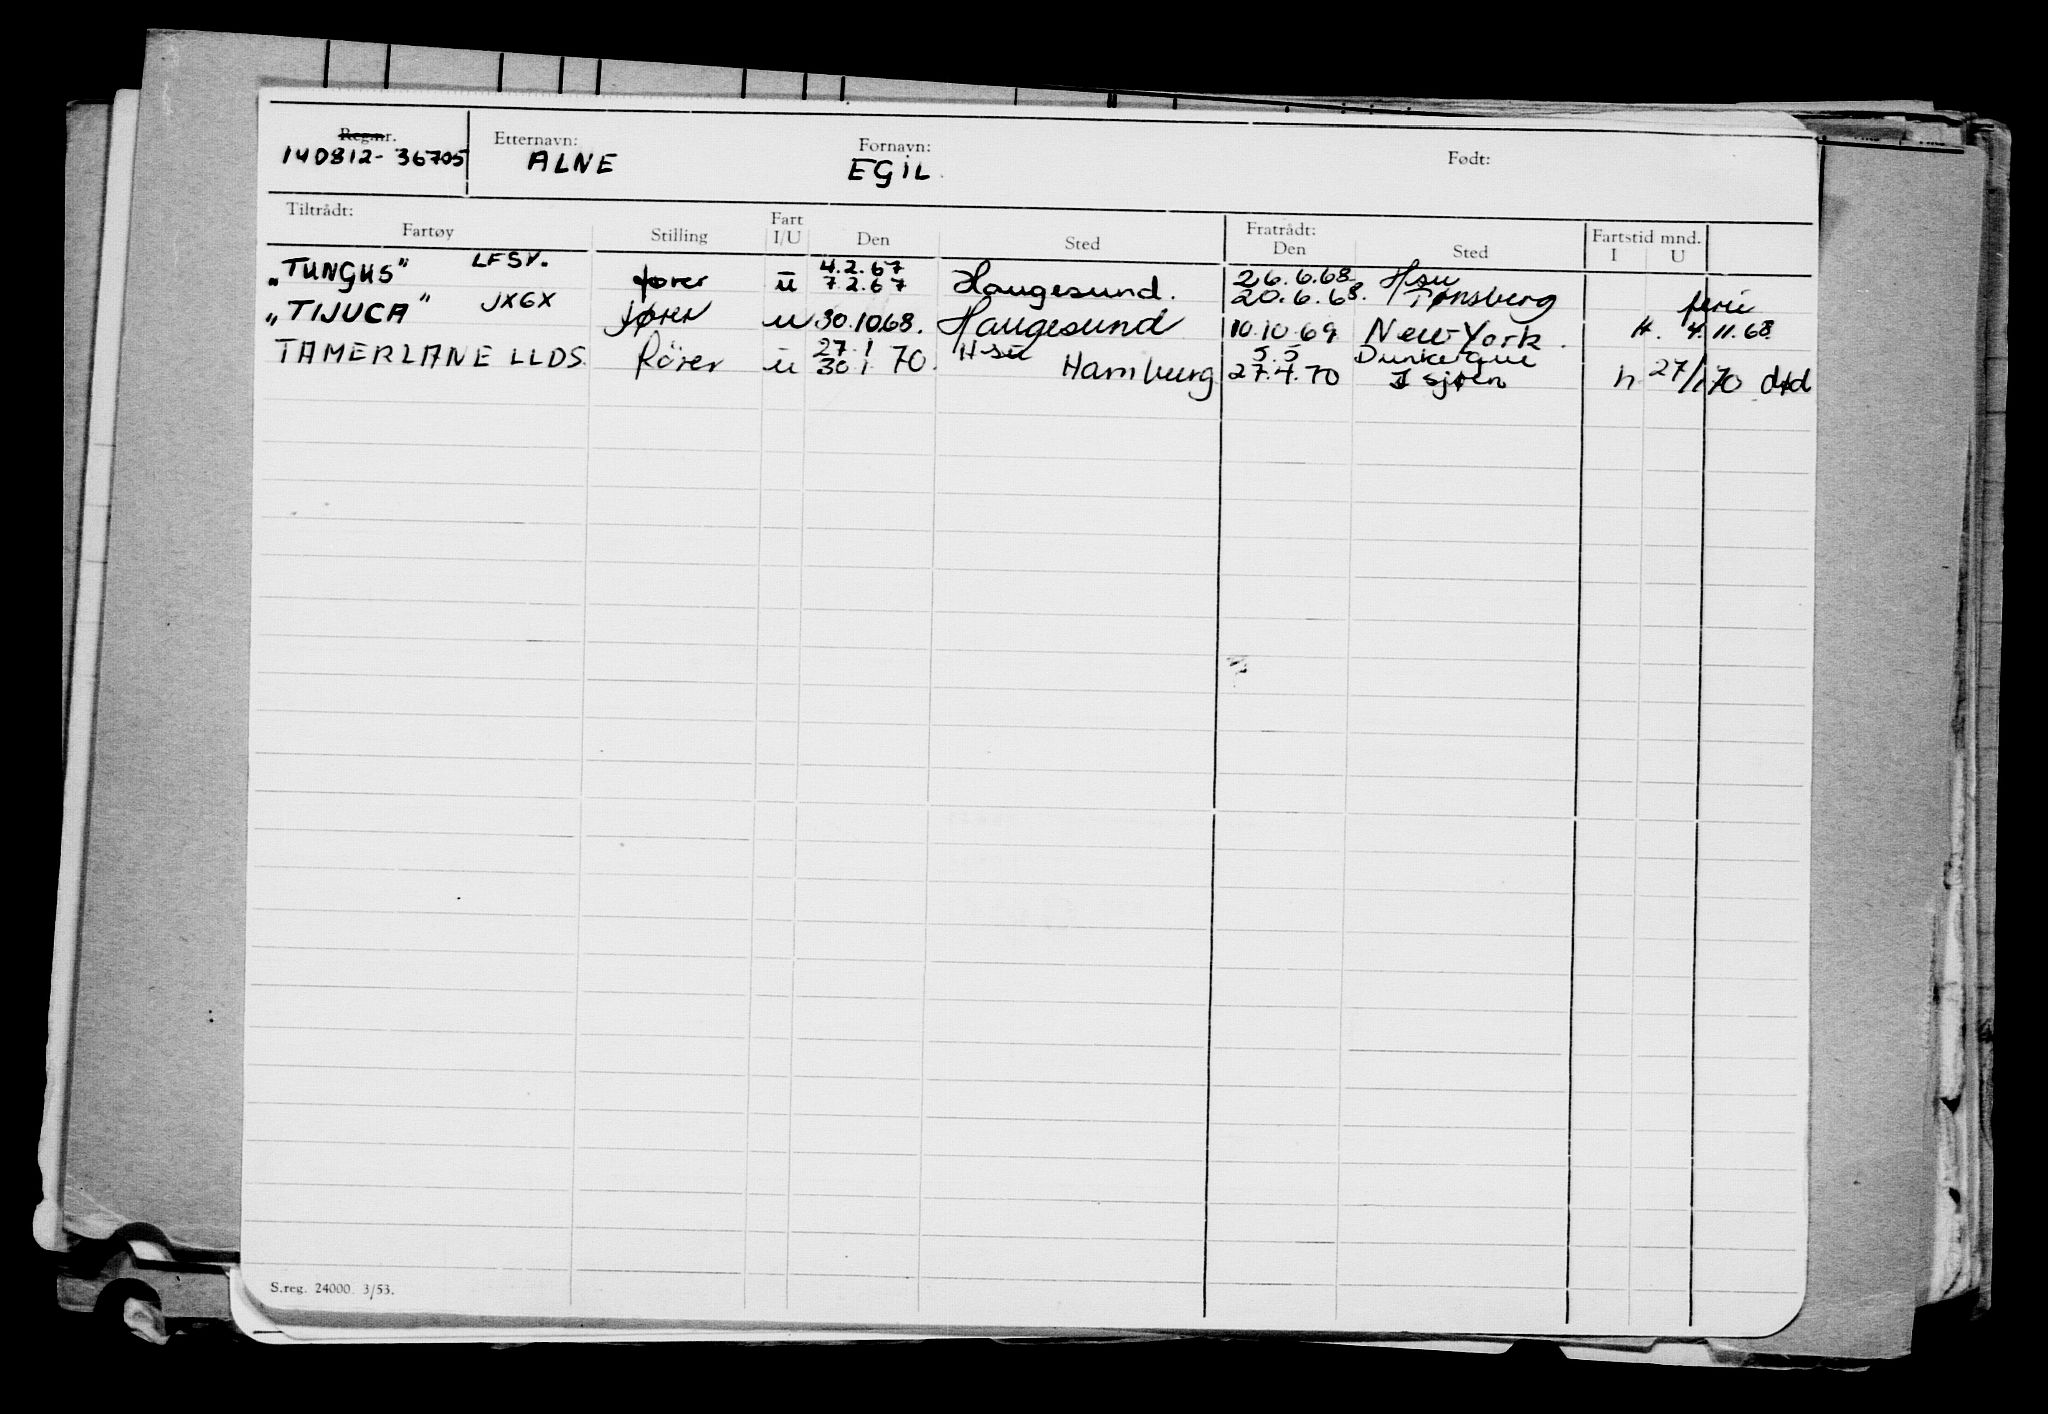 Reg.nr. Etternavn: Fornavn: Født:
140812-36705 ALNE EGIL.
Tiltrådt: Fartøy Stilling Fart I/U Den Sted Fratrådt: Den Sted Fartstid mnd. I U
„TUNGUS" LFSV. fører u 4.2.67 7.2.67 Haugesund. 26.6.68 20.6.68. Hsu Tønsberg ferie
„TIJUCA" JXGX fører u 30.10.68. Haugesund 10.10.69 New York. H. 4.11.68
TAMERLANE LLDS förer u 27.1 30.1.70. H-su Hamburg 5.5 27.4.70 Dunkerque I sjøen h 27/1.70 dtd
S.reg. 24000. 3/53.